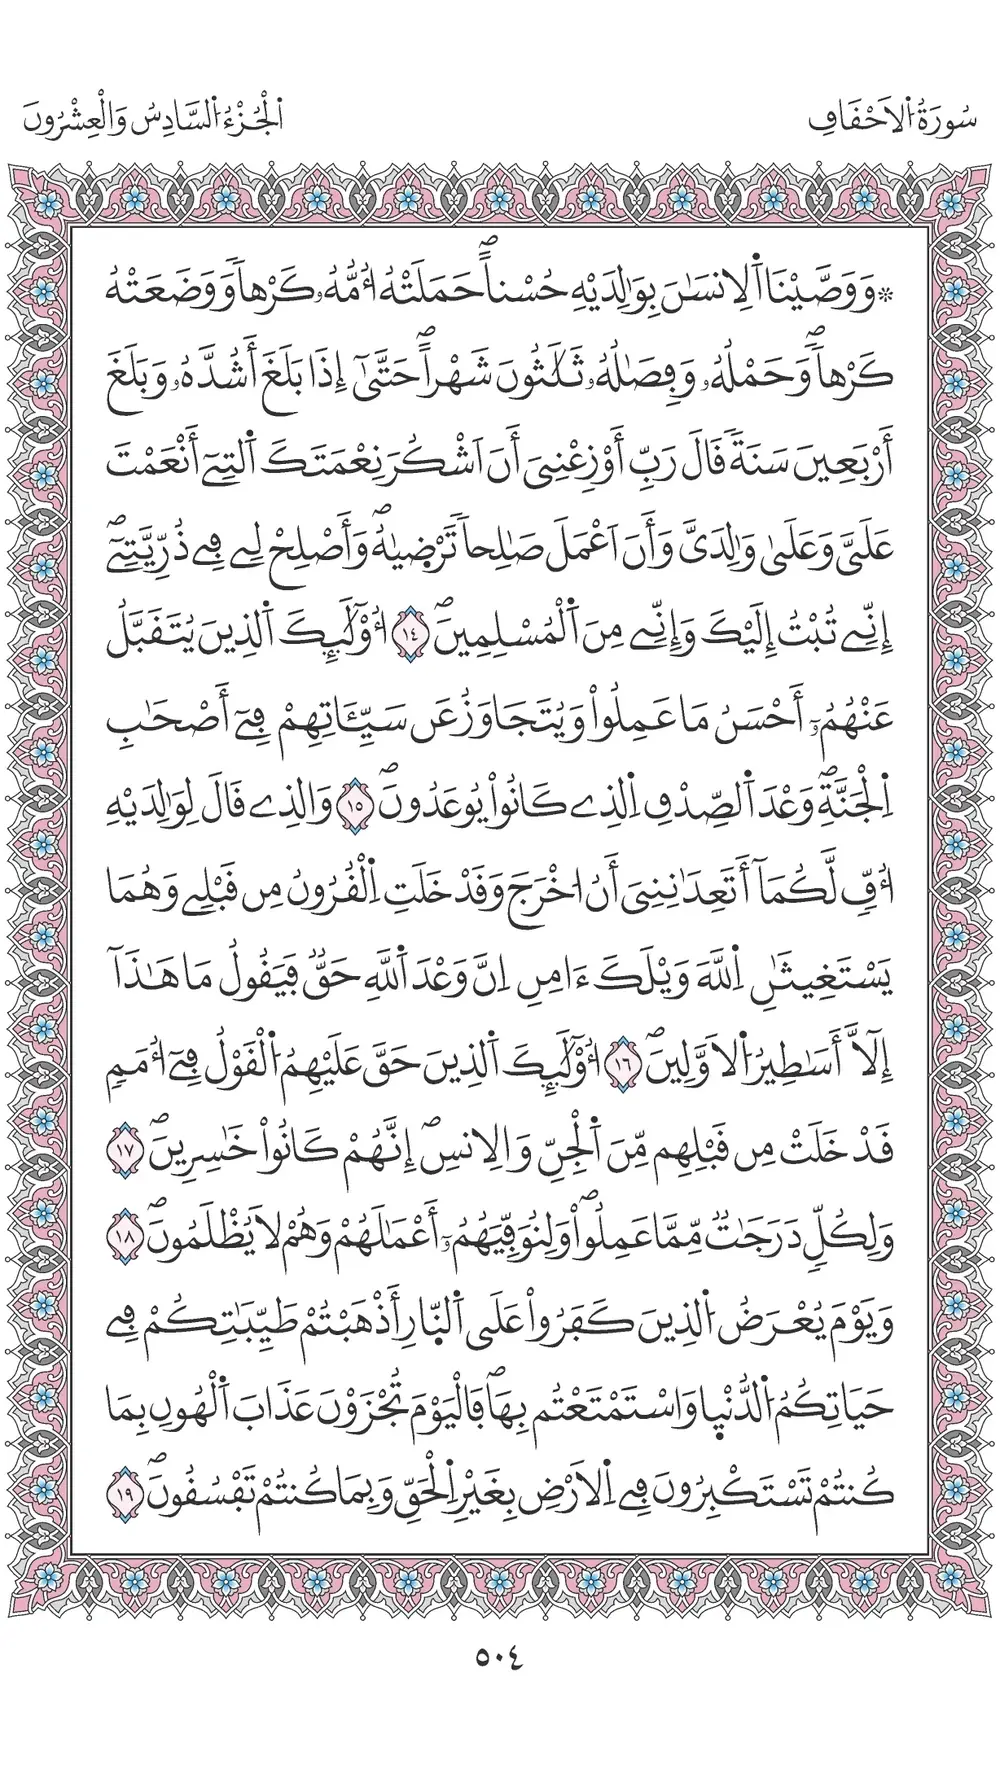 سُورَةُ اَ۬لَاحْقَافِ
اَ۬لْجُزْءُ اُ۬لسَّادِسُ وَالْعِشْرُونَ
* وَوَصَّيْنَا اَ۬لِانسَٰنَ بِوَٰلِدَيْهِ حُسْناًۖ حَمَلَتْهُ أُمُّهُۥ كَرْهاٗ وَوَضَعَتْهُ
كَرْهاٗۖ وَحَمْلُهُۥ وَفِصَٰلُهُۥ ثَلَٰثُونَ شَهْراًۖ حَتَّىٰٓ إِذَا بَلَغَ أَشُدَّهُۥ وَبَلَغَ
أَرْبَعِينَ سَنَةٗ قَالَ رَبِّ أَوْزِعْنِيَ أَنَ اَشْكُرَ نِعْمَتَكَ اَ۬لتِےٓ أَنْعَمْتَ
عَلَيَّ وَعَلَىٰ وَٰلِدَيَّ وَأَنَ اَعْمَلَ صَٰلِحاٗ تَرْضِيٰهُۖ وَأَصْلِحْ لِے فِے ذُرِّيَّتِےٓۖ
إِنِّے تُبْتُ إِلَيْكَ وَإِنِّے مِنَ اَ۬لْمُسْلِمِينَۖ ١٤ أُوْلَٰٓئِكَ اَ۬لذِينَ يُتَقَبَّلُ
عَنْهُمُۥٓ أَحْسَنُ مَا عَمِلُواْ وَيُتَجَاوَزُ عَن سَيِّـَٔاتِهِمْ فِےٓ أَصْحَٰبِ
اِ۬لْجَنَّةِۖ وَعْدَ اَ۬لصِّدْقِ اِ۬لذِے كَانُواْ يُوعَدُونَۖ ١٥ وَالذِے قَالَ لِوَٰلِدَيْهِ
أُفّٖ لَّكُمَآ أَتَعِدَٰنِنِيَ أَنُ اخْرَجَ وَقَدْ خَلَتِ اِ۬لْقُرُونُ مِن قَبْلِے وَهُمَا
يَسْتَغِيثَٰنِ اِ۬للَّهَ وَيْلَكَ ءَامِنِ اِنَّ وَعْدَ اَ۬للَّهِ حَقّٞ فَيَقُولُ مَا هَٰذَآ
إِلَّآ أَسَٰطِيرُ اُ۬لَاوَّلِينَۖ ١٦ أُوْلَٰٓئِكَ اَ۬لذِينَ حَقَّ عَلَيْهِمُ اُ۬لْقَوْلُ فِےٓ أُمَمٖ
قَدْ خَلَتْ مِن قَبْلِهِم مِّنَ اَ۬لْجِنِّ وَالِانسِۖ إِنَّهُمْ كَانُواْ خَٰسِرِينَۖ ١٧
وَلِكُلّٖ دَرَجَٰتٞ مِّمَّا عَمِلُواْۖ وَلِنُوَفِّيَهُمُۥٓ أَعْمَٰلَهُمْ وَهُمْ لَا يُظْلَمُونَۖ ١٨
وَيَوْمَ يُعْرَضُ اُ۬لذِينَ كَفَرُواْ عَلَى اَ۬لنّ۪ارِ أَذْهَبْتُمْ طَيِّبَٰتِكُمْ فِے
حَيَاتِكُمُ اُ۬لدُّنْي۪ا وَاسْتَمْتَعْتُم بِهَاۖ فَالْيَوْمَ تُجْزَوْنَ عَذَابَ اَ۬لْهُونِ بِمَا
كُنتُمْ تَسْتَكْبِرُونَ فِے اِ۬لَارْضِ بِغَيْرِ اِ۬لْحَقِّ وَبِمَا كُنتُمْ تَفْسُقُونَۖ ١٩
٥٠٤